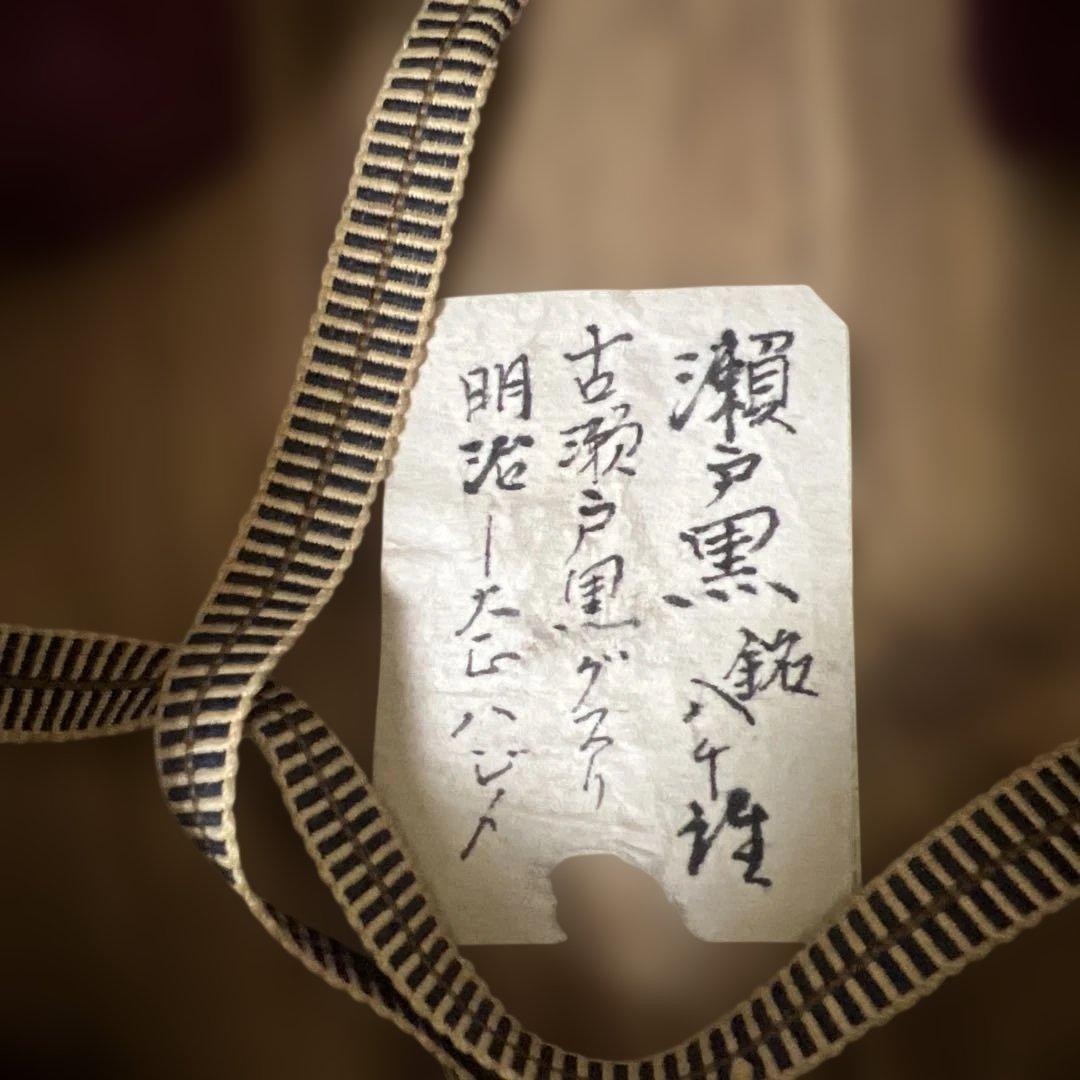 瀬戸黒 銘 八千誰
古瀬戸黒グスリ
明治ー大正ハジメ